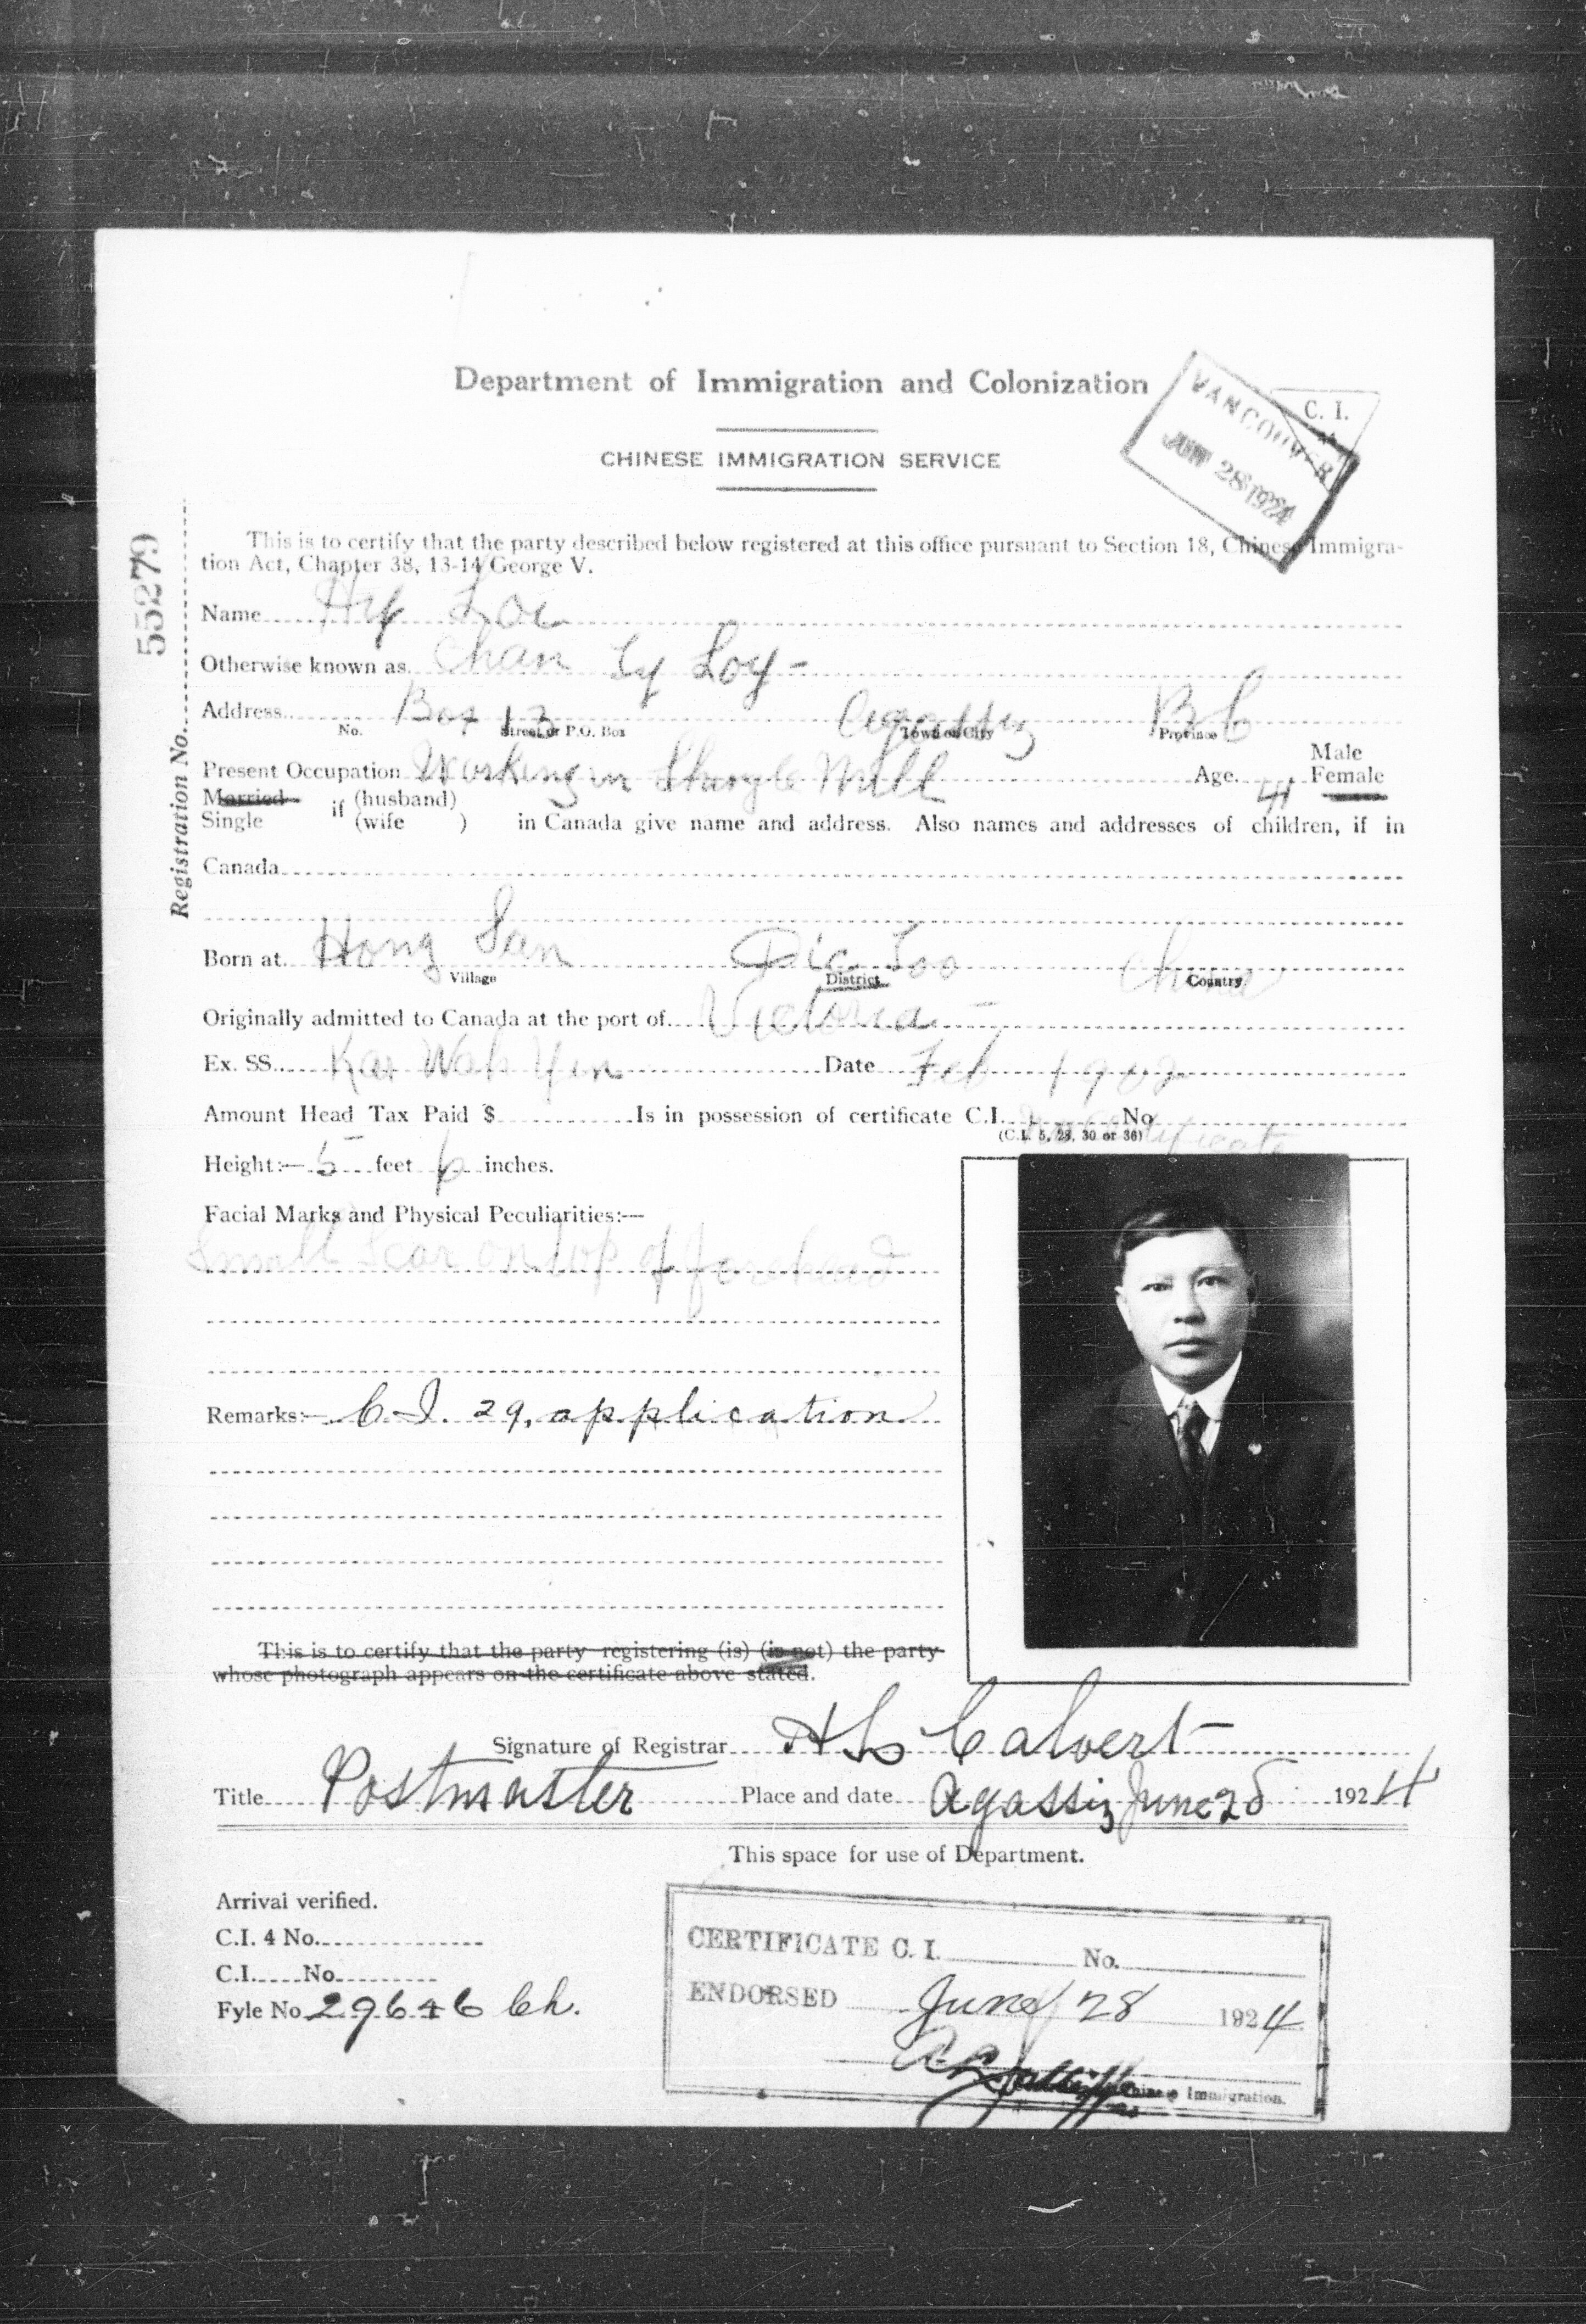 Department of Immigration and Colonization
CHINESE IMMIGRATION SERVICE
C. I.
VANCOUVER
JUN 28 1924
55279
Registration No.
This is to certify that the party described below registered at this office pursuant to Section 18, Chinese Immigra-
tion Act, Chapter 38, 13-14 George V.
Name Hy Loi
Otherwise known as Chan Ly Loy -
Address Box 13 Agassiz B C
No. Street or P.O. Box Town or City Province
Present Occupation Working in Shingle Mill Age 41 Male
Female
Married
Single if (husband)
(wife ) in Canada give name and address. Also names and addresses of children, if in
Canada
Born at Hong San Dic Too China
Village District Country
Originally admitted to Canada at the port of Victoria -
Ex. SS. Kar Wah Yin Date Feb 1902
Amount Head Tax Paid $ Is in possession of certificate C.I. No
(C.I. 5, 28, 30 or 36) certificate
Height:— 5 feet 6 inches.
Facial Marks and Physical Peculiarities:—
Small Scar on top of forehead
Remarks:— C.I. 29, application
This is to certify that the party registering (is) (is not) the party
whose photograph appears on the certificate above stated.
Signature of Registrar H Calvert
Title Postmaster Place and date Agassiz June 28 1924
This space for use of Department.
Arrival verified.
C.I. 4 No.
C.I. No.
Fyle No. 29646 Ch.
CERTIFICATE C. I. No.
ENDORSED June 28 1924
Chinese Immigration.